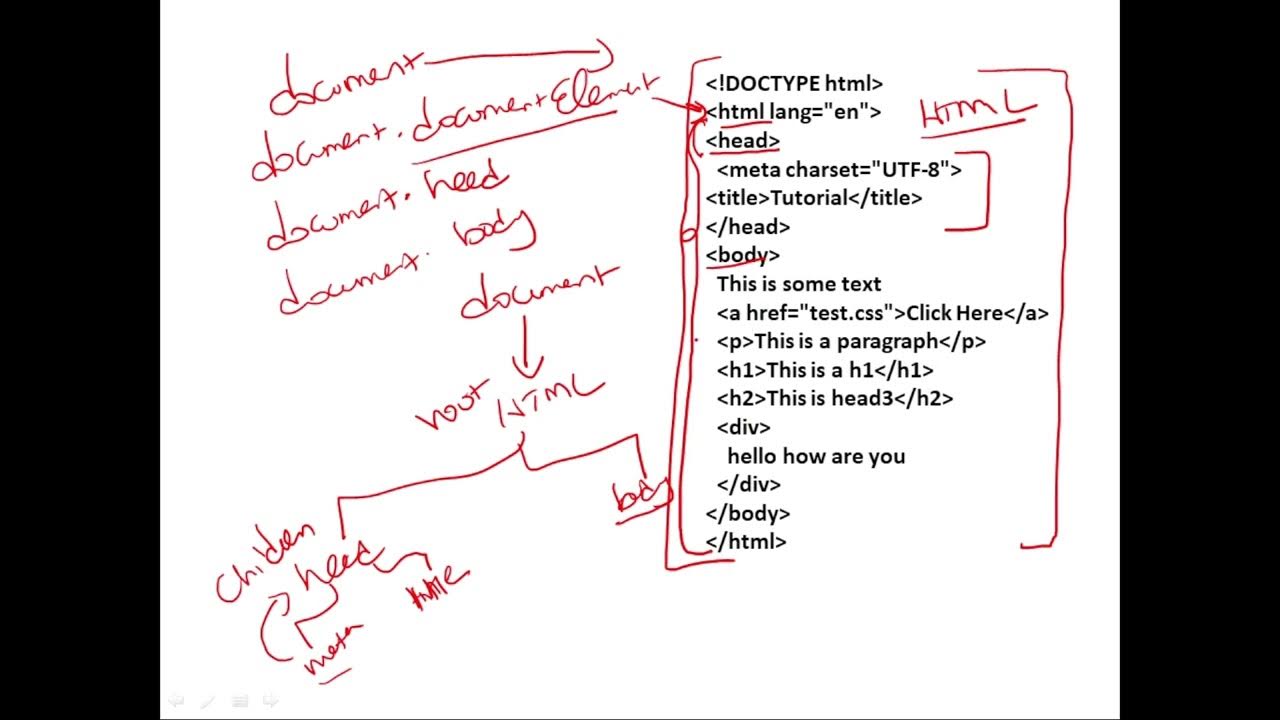 document
document.documentElement
document.head
document.body
document
root HTML
body
children
head
title
meta
<!DOCTYPE html>
<html lang="en">
HTML
<head>
<meta charset="UTF-8">
<title>Tutorial</title>
</head>
<body>
This is some text
<a href="test.css">Click Here</a>
<p>This is a paragraph</p>
<h1>This is a h1</h1>
<h2>This is head3</h2>
<div>
hello how are you
</div>
</body>
</html>